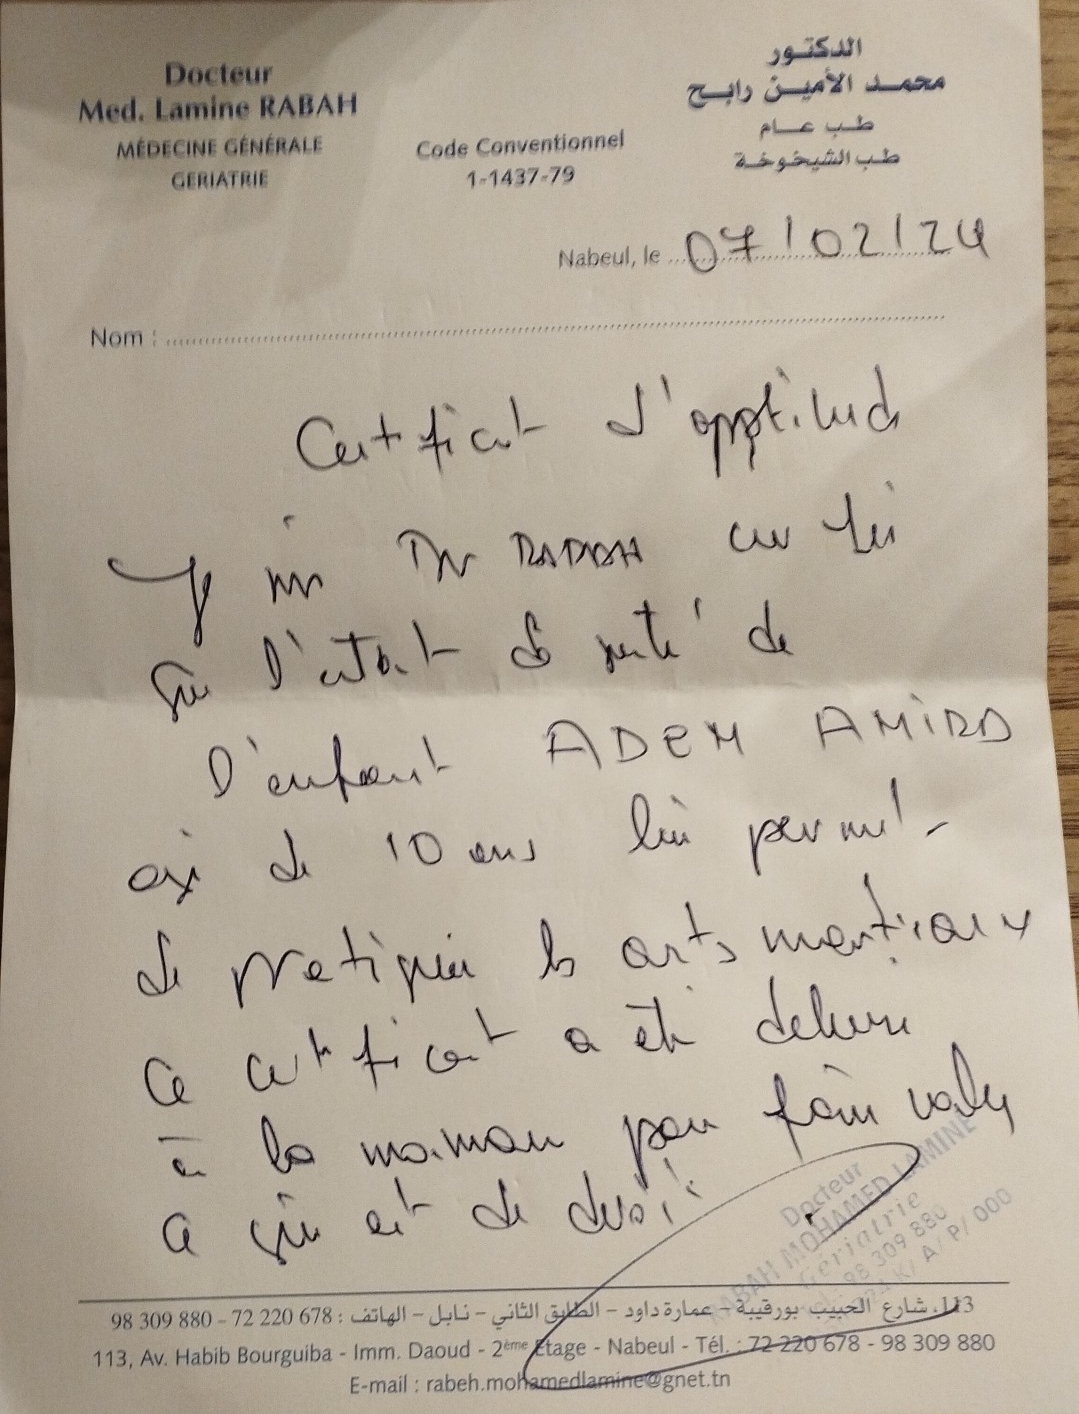 Docteur
Med. Lamine RABAH
MÉDECINE GÉNÉRALE
GERIATRIE
Code Conventionnel
1-1437-79
الدكتور
محمد الأمين رابح
طب عام
طب الشيخوخة
Nabeul, le 07/02/24
Nom :
Certificat d'apptitude
Dr RABAH
l'etat de santé de
l'enfant ADEM AMIRA
de 10 ans lui permet
de pratiquer les arts martiaux
Ce certificat a été delivré
à la maman pour faire valoir
ce qui est de droit
Docteur
RABAH MOHAMED LAMINE
Gériatrie
98 309 880
K/ A/ P/ 000
113، شارع الحبيب بورقيبة – عمارة داود – الطابق الثاني – نابل – الهاتف : 72 220 678 - 98 309 880
113, Av. Habib Bourguiba - Imm. Daoud - 2ème Etage - Nabeul - Tél. : 72 220 678 - 98 309 880
E-mail : rabeh.mohamedlamine@gnet.tn